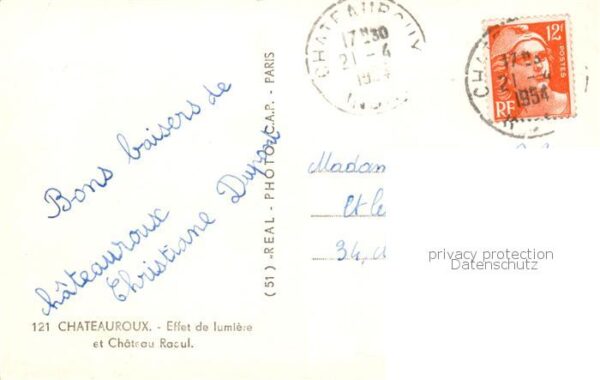 Bons baisers de
châteauroux
Christiane
121 CHATEAUROUX. - Effet de lumière
et Château Raoul.
(51) - REAL - PHOTO C.A.P. - PARIS
CHATEAUROUX
17H30
21-4
1954
12F
POSTES
RF
17H30
21-4
1954
Madam
Et le
34,
privacy protection
Datenschutz